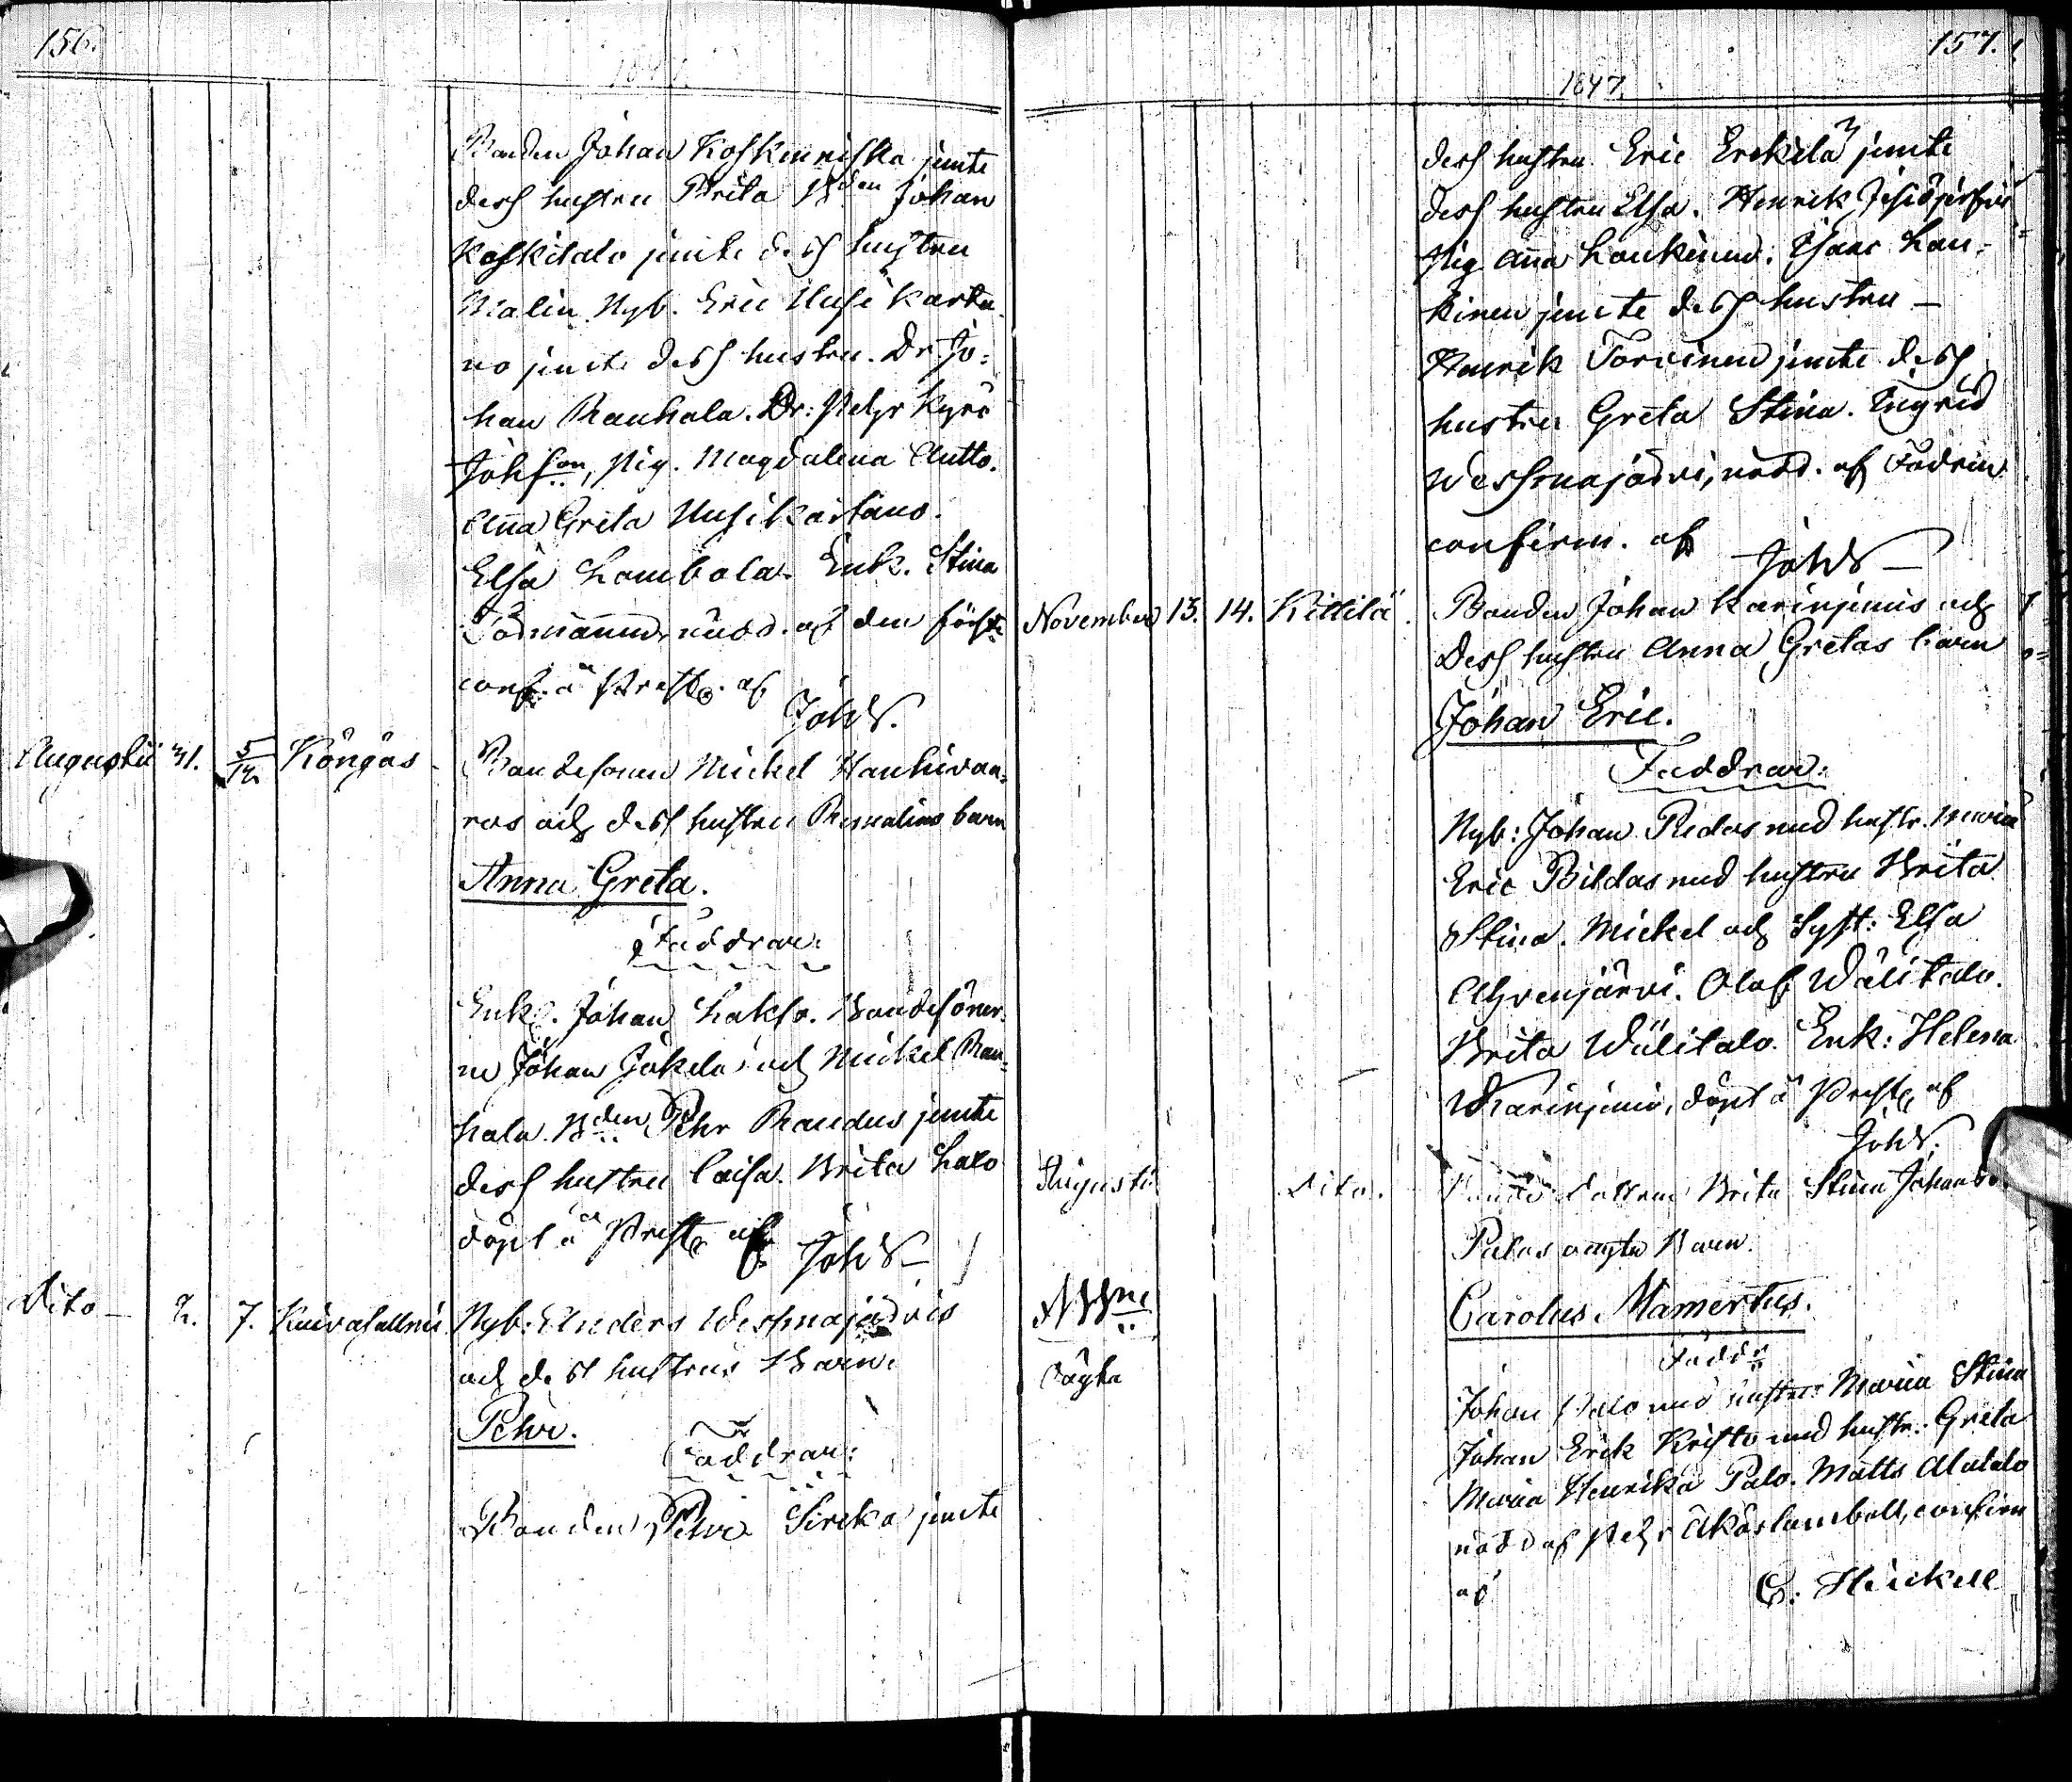 156.
1847.
Bonden Johan Koskenniska jemte
dess hustru Brita Bden Johan
Koskitalo jemte dess hustru
Malin. Nyb. Eric Uusikarta
no jemte dess hustru. Dr. Jo=
han Rauhala. Dr: Pehr Kyrö
Johsson, Pig. Magdalena Autto.
Anna Greta Uusikartano.
Elsa Lombola. Enk. Stina
nödd. af den förste
conf. å Prestg. af
JohW.
Augusti 31. 5/12 Köngäs
Bondesonen Mickel Hanhivaa=
ras och dess hustru barn
Anna Greta.
Faddrar:
Enkl. Johan Lakso. Bondesöner=
ne Johan Jokela och Mickel Rau=
hala. Bden Pehr Raudus jemte
dess hustru Caisa. Brita Lalo
döpt å Prestg. af JohW
Dito 2. 7. Kuivasalmi
Nyb. Anders Wessmajärvis
och dess hustrus Barn.
Pehr.
Faddrar:
Bonden Pehr Sirkka jemte
157.
1847.
dess hustru Eric Erkkilä jemte
dess hustru Elsa. Henrik Jesiöjärfvi
Pig Anna Loukinen. Isaac Lou=
kinen jemte dess hustru
Henrik Torvinen jemte dess
hustru Greta Stina. Ingrid
Wessmajärvi, nödd. af Fadren
confirm. af JohW
November 13. 14. Kittilä.
Bonden Johan Karinjemis och
dess hustru Anna Gretas barn
Johan Eric.
Faddrar:
Nyb: Johan Rudas med hustr. Maria
Eric Pildas med hustru Brita
Stina. Mickel och Syst: Elsa
Ahvenjärvi. Olof Wälitalo.
Brita Wälitalo. Enk: Helena
Karinjemi, döpt å Prestg. af
JohW.
Augusti Dito.
Bonde dottren Brita Stina Johansd.
Palos oägta Barn.
Carolus Mamertus.
Oägta
Fadd:
Johan Palo med hustru Maria Stina
Johan Erik Kristo med hustr. Greta
Maria Henrika Palo. Matts Alatalo
nödd af Pehr Äkäslombolo, confirm
af C. Heickell